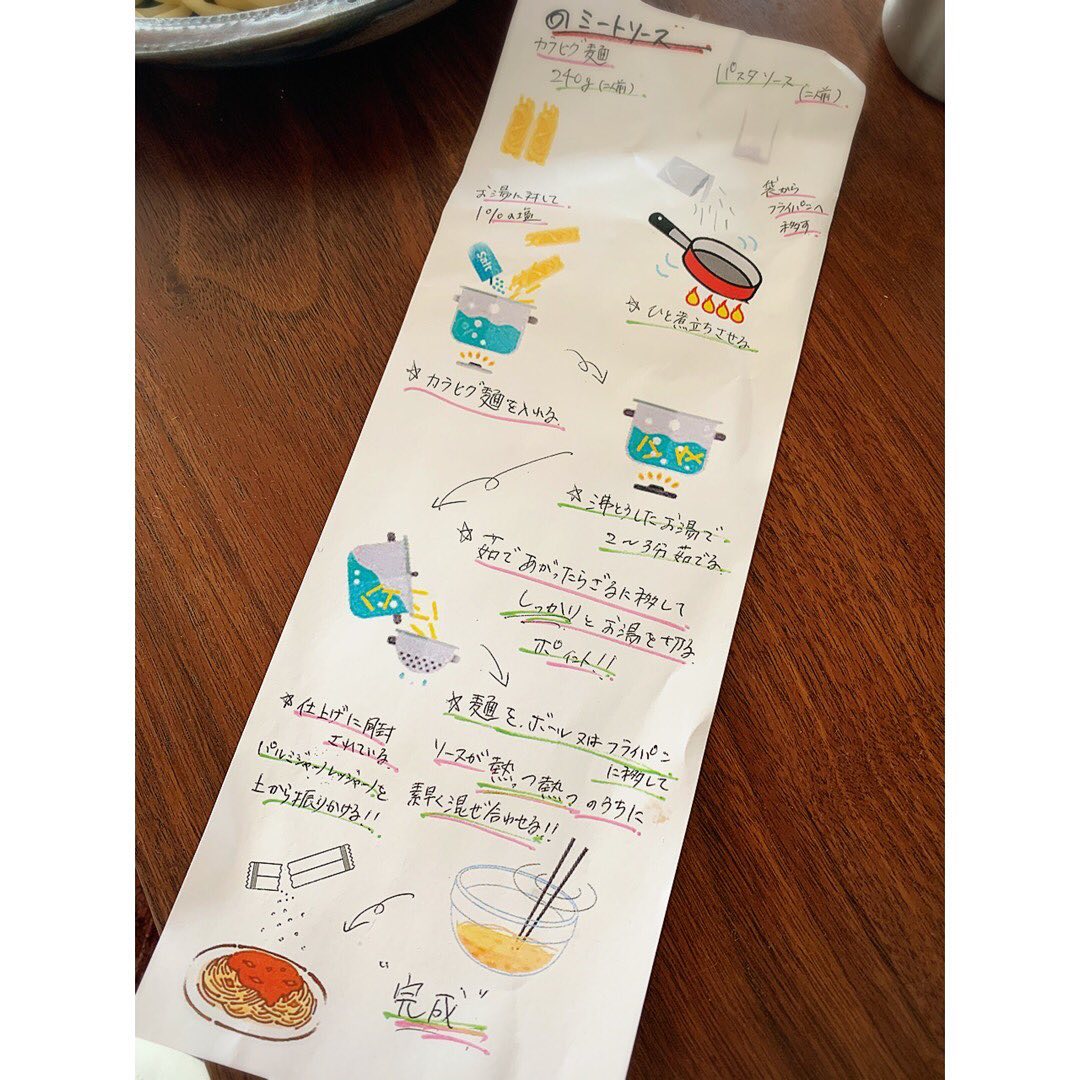 のミートソース
カラヒグ麺
240g(二人前)
パスタソース
(二人前)
お湯に対して
1%の塩
Salt
袋から
フライパンへ
移す
☆ひと煮立ちさせる
☆カラヒグ麺を入れる
☆沸とうしたお湯で
2〜3分茹でる
☆茹であがったらざるに移して
しっかりとお湯を切る
ポイント!!
☆麺を、ボール又はフライパン
に移して
ソースが熱っ熱っのうちに
素早く混ぜ合わせる!!
☆仕上げに同封
されている
パルミジャーノレッジャーノを
上から振りかける!!
"完成"